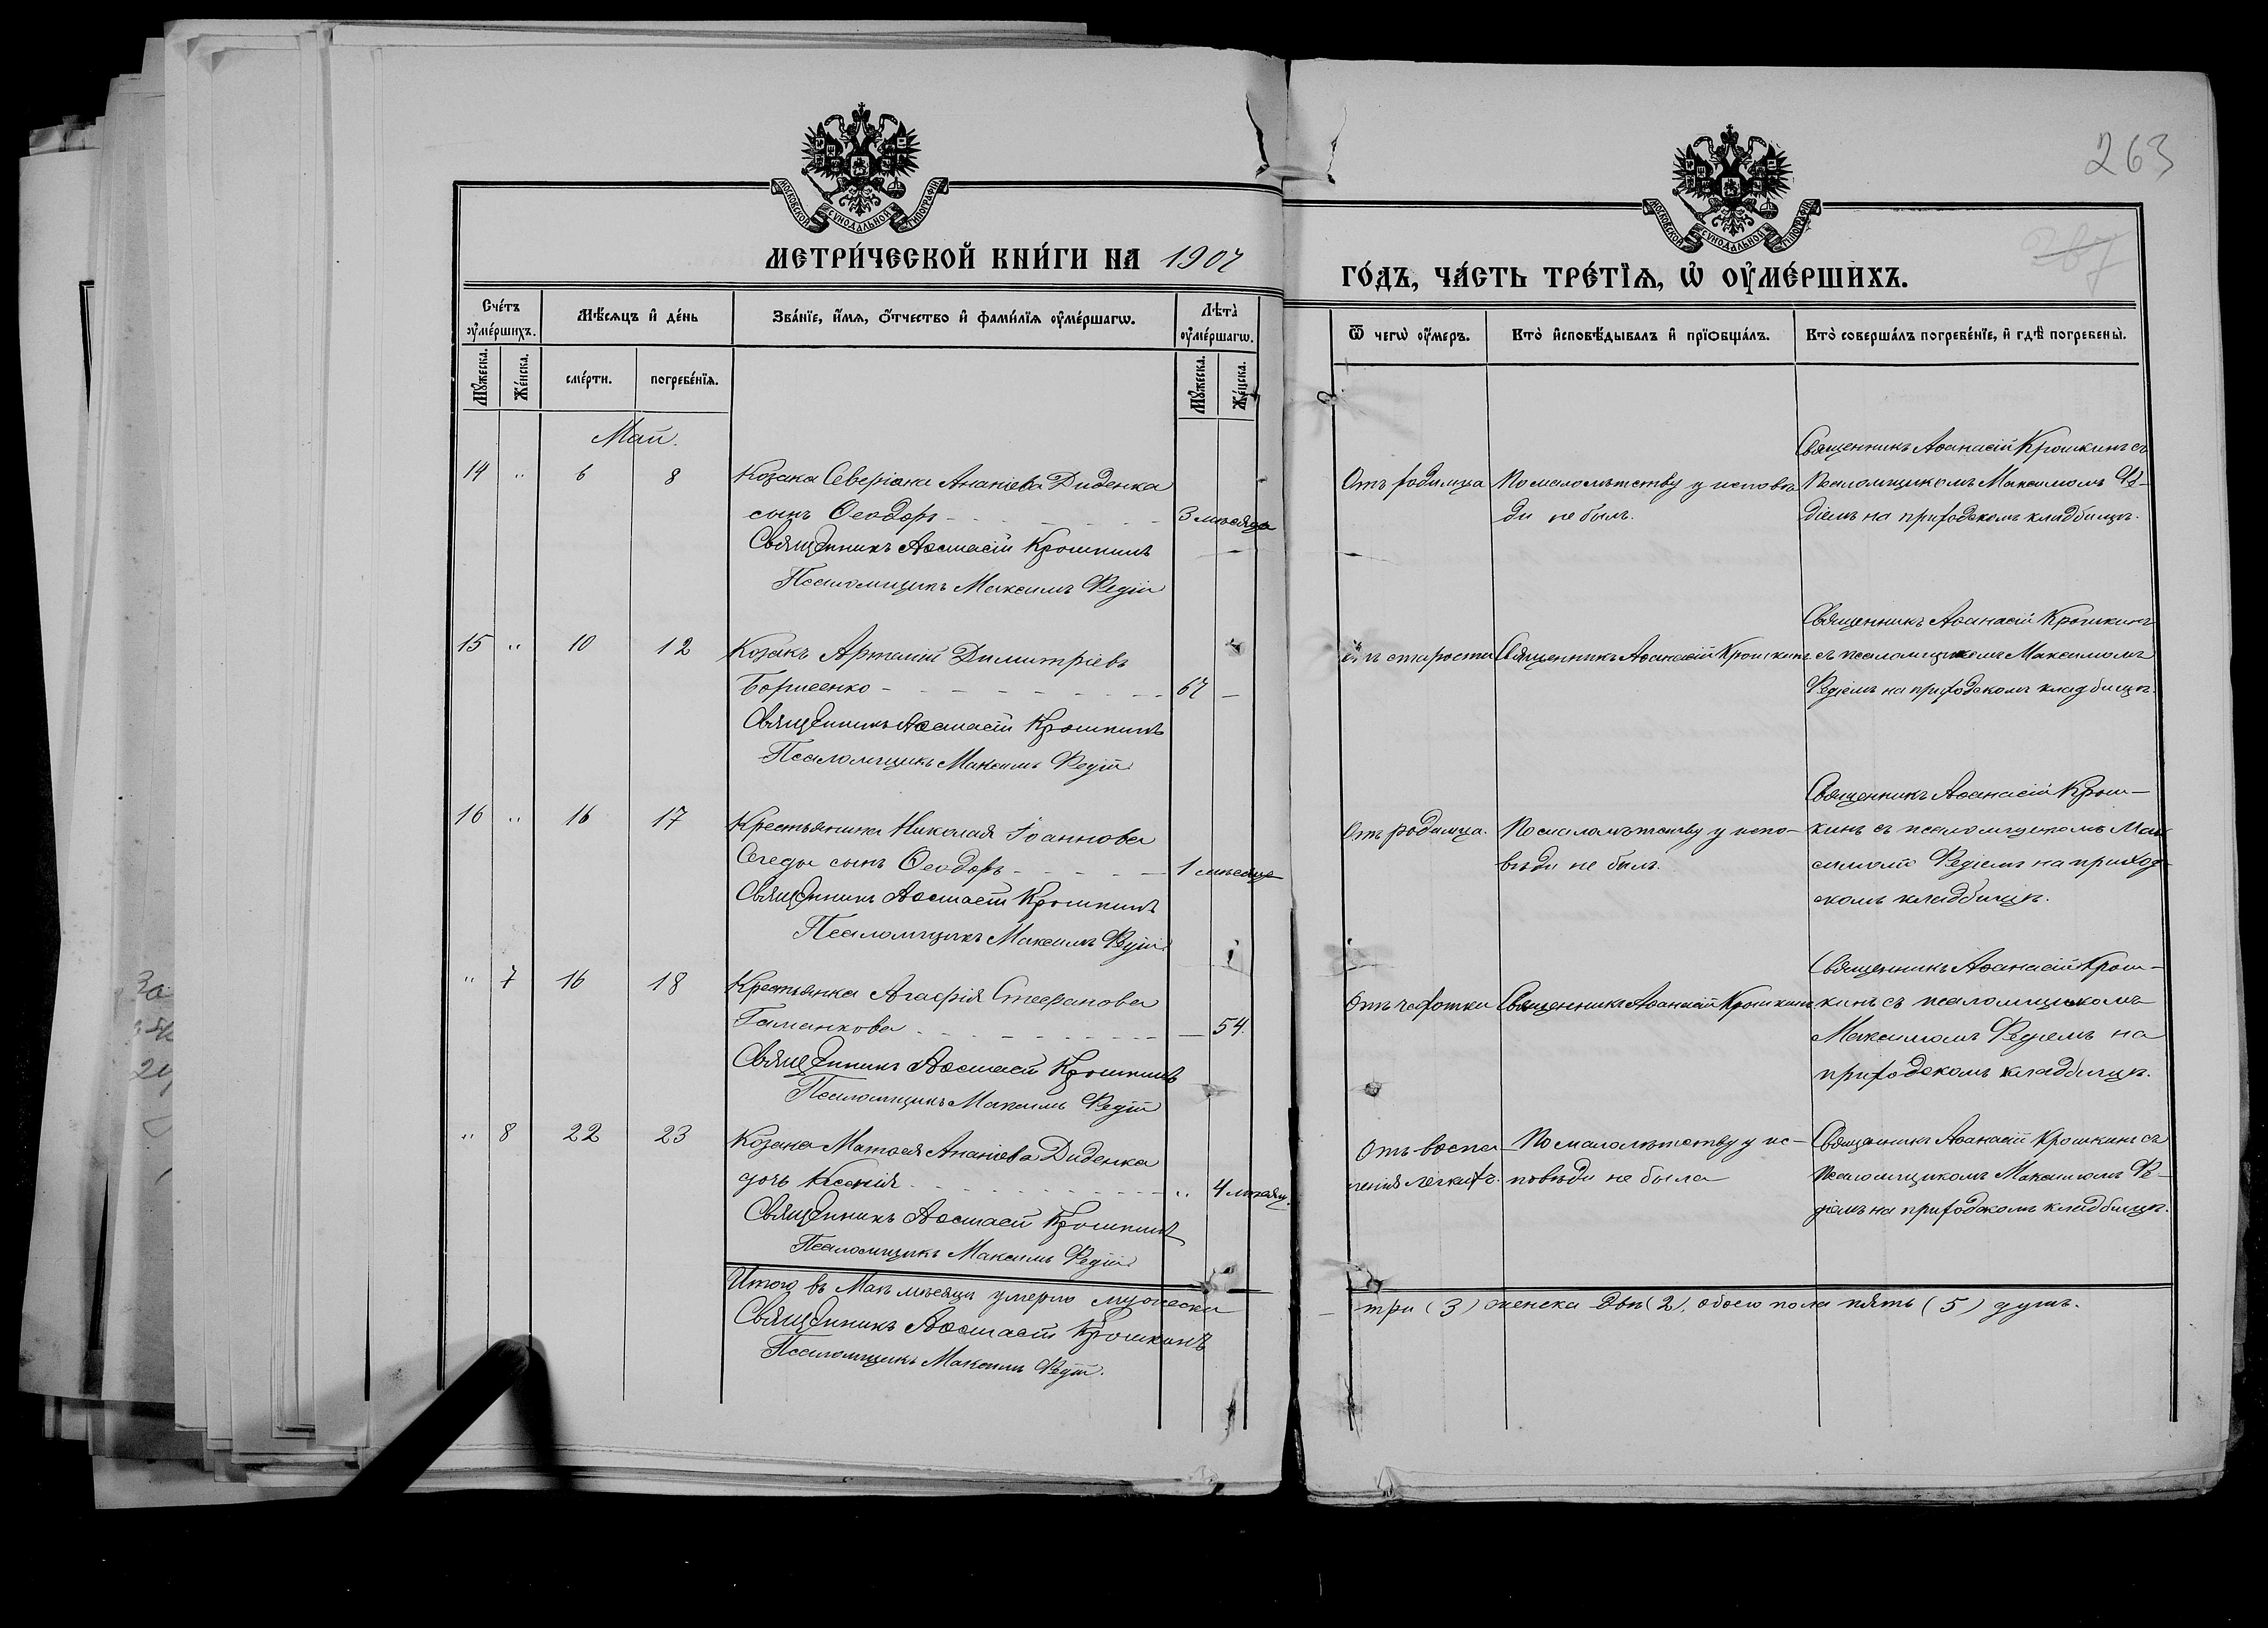 263
МОСКОВСКОЙ СѴНОДАЛЬНОЙ ТИПОГРАФІИ
МОСКОВСКОЙ СѴНОДАЛЬНОЙ ТИПОГРАФІИ
МЕТРИ́ЧЕСКОЙ КНИ́ГИ НА 1907
ГО́ДЪ, ЧА́СТЬ ТРЕ́ТЇѦ, Ѡ҆ ОУ҆МЕ́РШИХЪ.
Сче́тъ оу҆ме́ршихъ.
Мѣ́сяцъ и҆ де́нь
Зва́нїе, и҆́мѧ, ѻ҆́тчество и҆ фами́лїѧ оу҆ме́ршагѡ.
Лѣ̑та̀ оу҆ме́ршагѡ.
Ѿ чегѡ̀ оу҆́меръ.
Кто̀ и҆сповѣ́дывалъ и҆ прїѻбща́лъ.
Кто̀ соверша́лъ погребе́нїе, и҆ гдѣ̀ погребены̀.
Мꙋ́жеска.
Же́нска.
сме́рти.
погребе́нїѧ.
Мꙋ́жеска.
Же́нска.
Май.
14 " 6 8 Козака Северіана Ананіева Диденка
сынъ Ѳеодоръ 3 мѣсяца
Священникъ Аѳанасій Крошкинъ
Псаломщикъ Максимъ Федій
Отъ родимца
По малолѣтству у исповѣ
ди не былъ.
Священникъ Аѳанасій Крошкинъ съ
Псаломщикомъ Максимомъ Фе-
діемъ на приходскомъ кладбищѣ.
15 " 10 12 Козакъ Артемій Димитріевъ
Борисенко 67 —
Священникъ Аѳанасій Крошкинъ
Псаломщикъ Максимъ Федій
Отъ старости
Священникъ Аѳанасій Крошкинъ
Священникъ Аѳанасій Крошкинъ
съ псаломщикомъ Максимомъ
Федіемъ на приходскомъ кладбищѣ.
16 " 16 17 Крестьянина Николая Іоаннова
Сегеды сынъ Ѳеодоръ 1 мѣсяцъ
Священникъ Аѳанасій Крошкинъ
Псаломщикъ Максимъ Федій
Отъ родимца.
По малолѣтству у испо-
вѣди не былъ.
Священникъ Аѳанасій Крош-
кинъ съ псаломщикомъ Мак
симомъ Федіемъ на приход-
скомъ кладбищѣ.
" 7 16 18 Крестьянка Агафія Стефанова
Гаманкова — 54.
Священникъ Аѳанасій Крошкинъ
Псаломщикъ Максимъ Федій
Отъ чахотки
Священникъ Аѳанасій Крошкинъ
Священникъ Аѳанасій Крош-
кинъ съ псаломщикомъ
Максимомъ Федіемъ на
приходскомъ кладбищѣ.
" 8 22 23 Козака Матѳея Ананіева Диденка
дочь Ксенія " 4 мѣсяц.
Священникъ Аѳанасій Крошкинъ
Псаломщикъ Максимъ Федій
Отъ воспа-
ленія легкихъ.
По малолѣтству у ис-
повѣди не была
Священникъ Аѳанасій Крошкинъ съ
Псаломщикомъ Максимомъ Фе-
діемъ на приходскомъ кладбищѣ.
Итого въ Маѣ мѣсяцѣ умерло мужеска
три (3) женска двѣ (2), обоего пола пять (5) душъ.
Священникъ Аѳанасій Крошкинъ
Псаломщикъ Максимъ Федій.